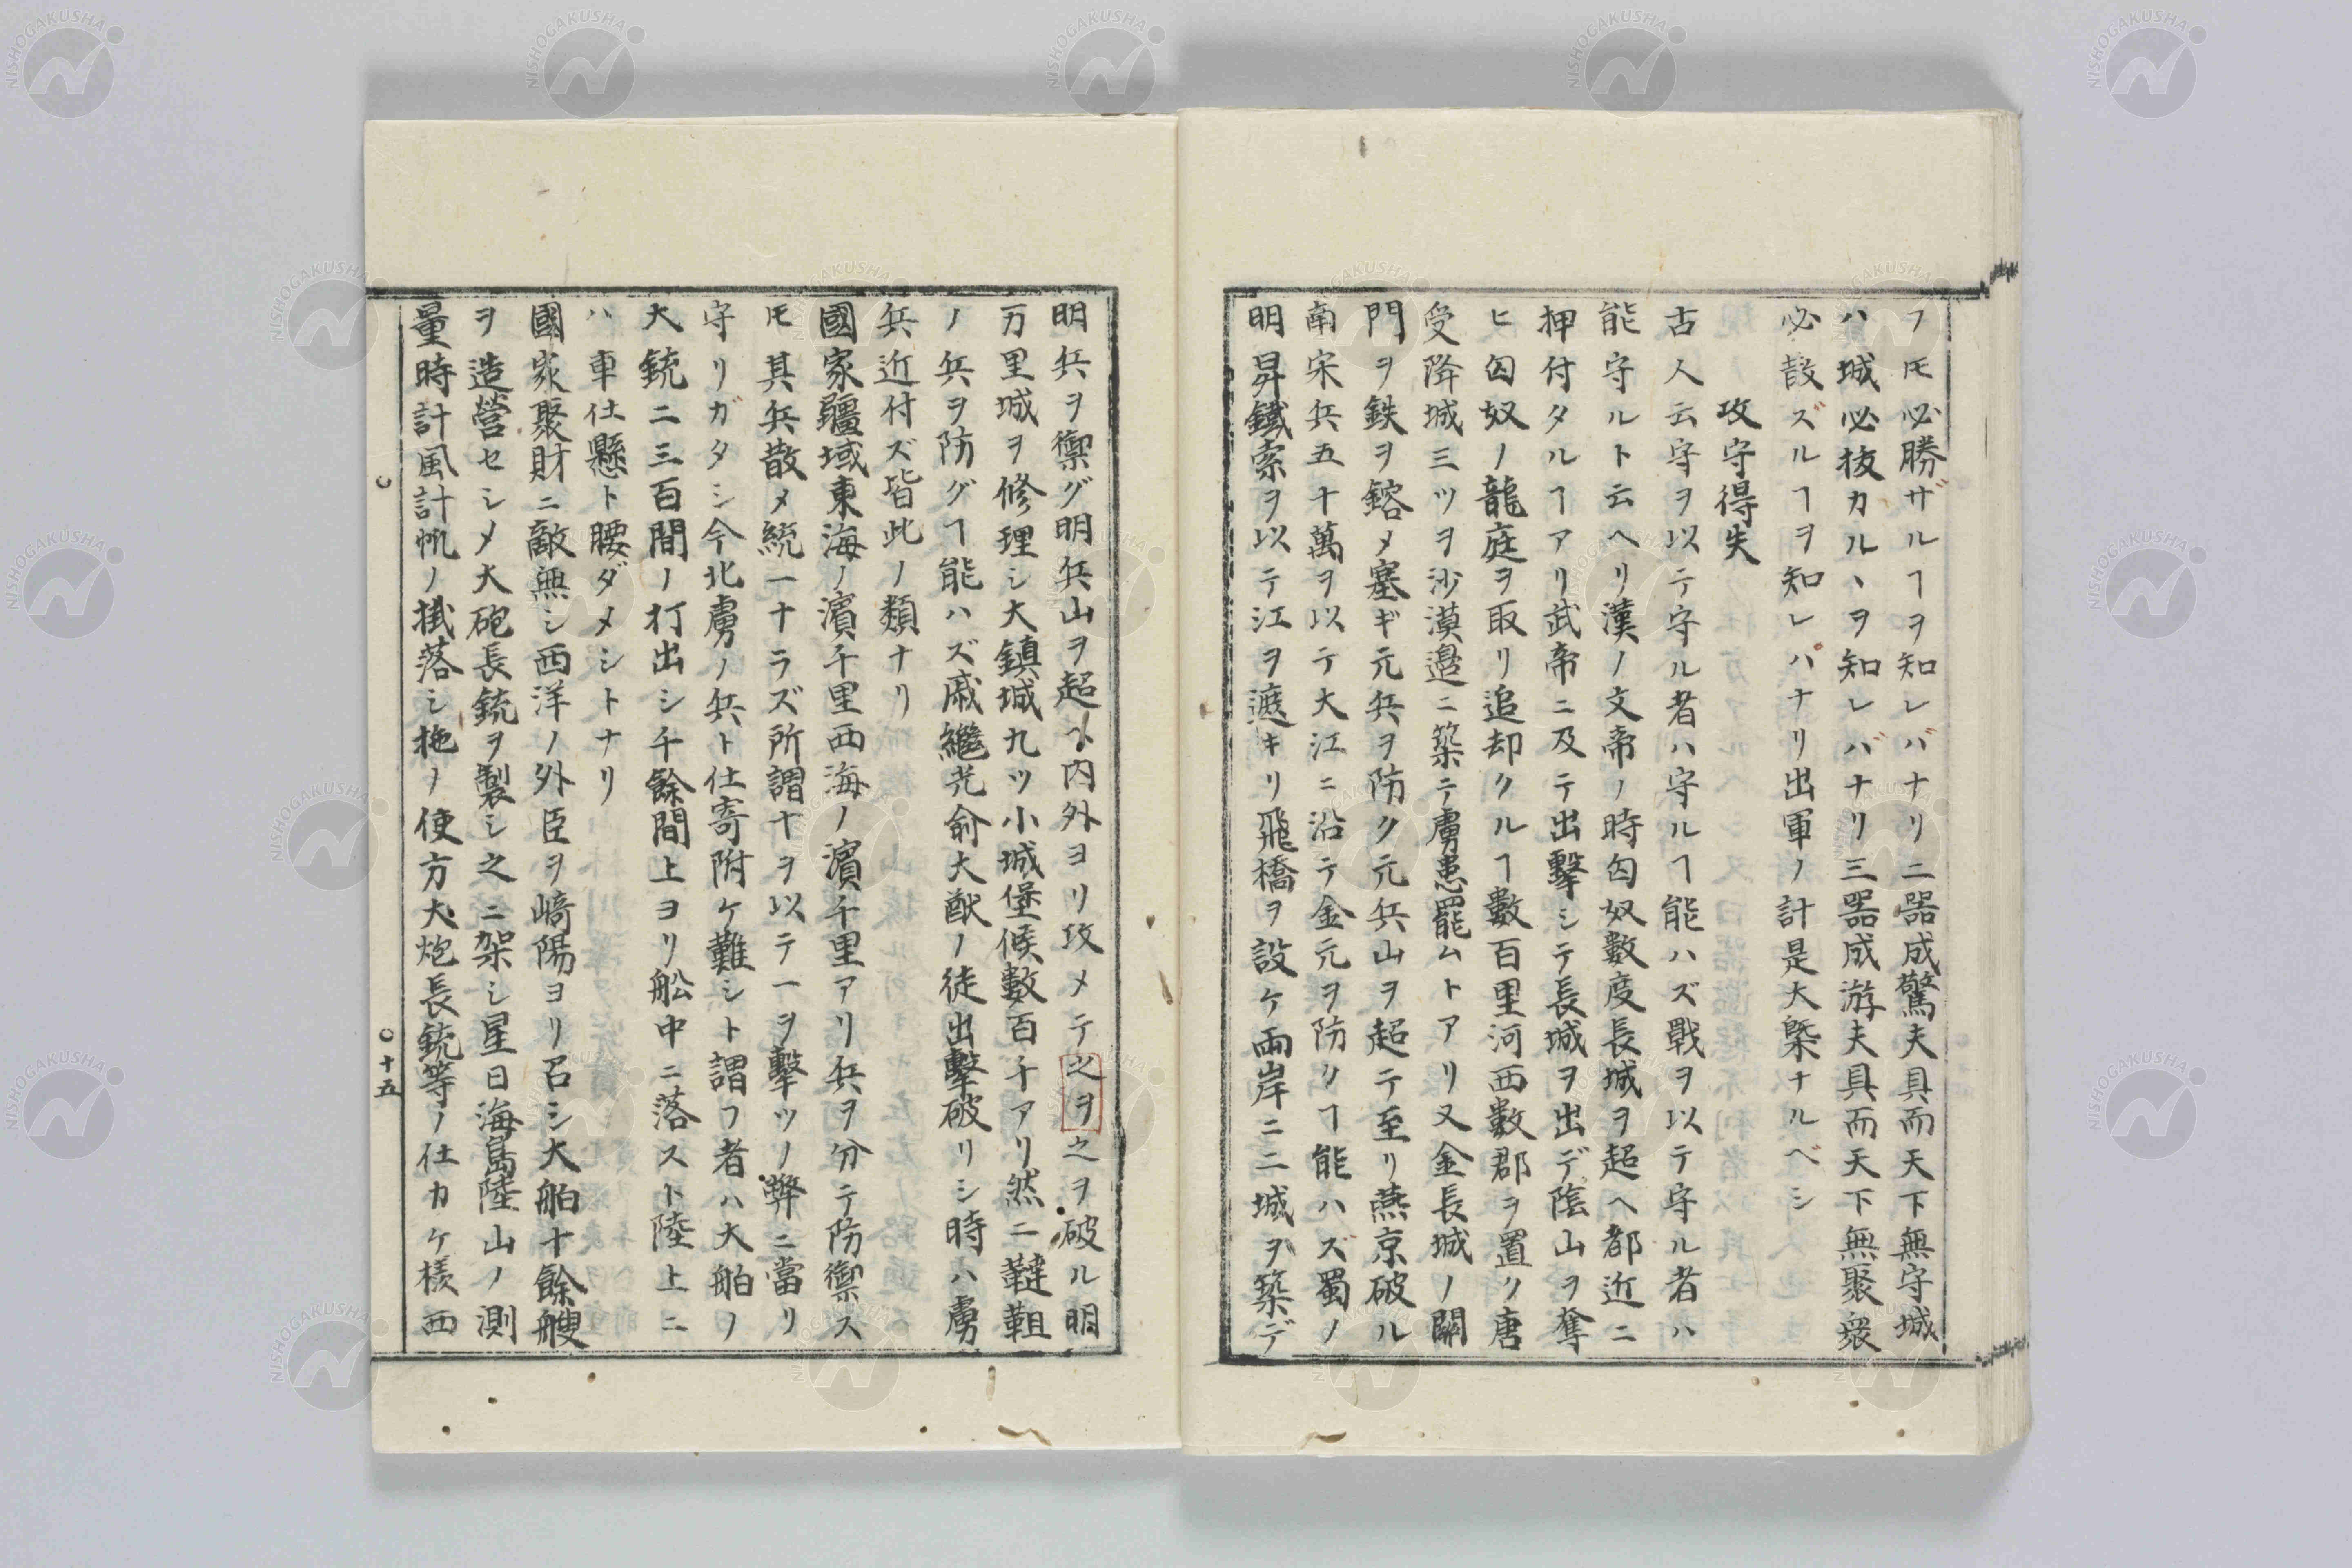 フㇳモ必勝ザルヿヲ知レバナリ二器成驚夫具而天下無守城
ハ城必抜カルヽヲ知レバナリ三器成游夫具而天下無聚衆
必散ズルヿヲ知レハナリ出軍ノ計是大槩ナルベシ
攻守得失
古人云守ヲ以テ守ル者ハ守ルヿ能ハズ戰ヲ以テ守ル者ハ
能守ルト云ヘリ漢ノ文帝ノ時匈奴數度長城ヲ超ヘ都近ニ
押付タルヿアリ武帝ニ及テ出擊シテ長城ヲ出デ陰山ヲ奪
ヒ匈奴ノ龍庭ヲ取リ追却クルヿ數百里河西數郡ヲ置ク唐
受降城三ツヲ沙漠邉ニ築テ虜患罷ムトアリ又金長城ノ關
門ヲ鉄ヲ鎔メ塞ギ元兵ヲ防ク元兵山ヲ超テ至リ燕京破ル
南宋兵五十萬ヲ以テ大江ニ沿テ金元ヲ防クヿ能ハズ蜀ノ
明昇鐵索ヲ以テ江ヲ遮キリ飛橋ヲ設ケ両岸ニ二城ヲ築デ
明兵ヲ禦グ明兵山ヲ超ヘ内外ヨリ攻メテ之ヲ之ヲ破ル明
万里城ヲ修理シ大鎮城九ツ小城堡候數百千アリ然ニ韃靼
ノ兵ヲ防グヿ能ハズ戚繼光俞大猷ノ徒出擊破リシ時ハ虜
兵近付ズ皆此ノ類ナリ
國家疆域東海ノ濱千里西海ノ濱千里アリ兵ヲ分テ防禦ス
ㇳモ其兵散メ統一ナラズ所謂十ヲ以テ一ヲ擊ツノ弊ニ當リ
守リガタシ今北虜ノ兵ト仕寄附ケ難シト謂フ者ハ大舶ノ
大銃二三百間ノ打出シ千餘間上ヨリ舩中ニ落スト陸上ニ
ハ車仕懸ト腰ダメシトナリ
國家聚財ニ敵無シ西洋ノ外臣ヲ﨑陽ヨリ召シ大舶十餘艘
ヲ造營セシメ大砲長銃ヲ製シ之ニ架シ星日海島陸山ノ測
量時計風計帆ノ掛落シ拖ノ使方大炮長銃等ノ仕カケ様西
十五